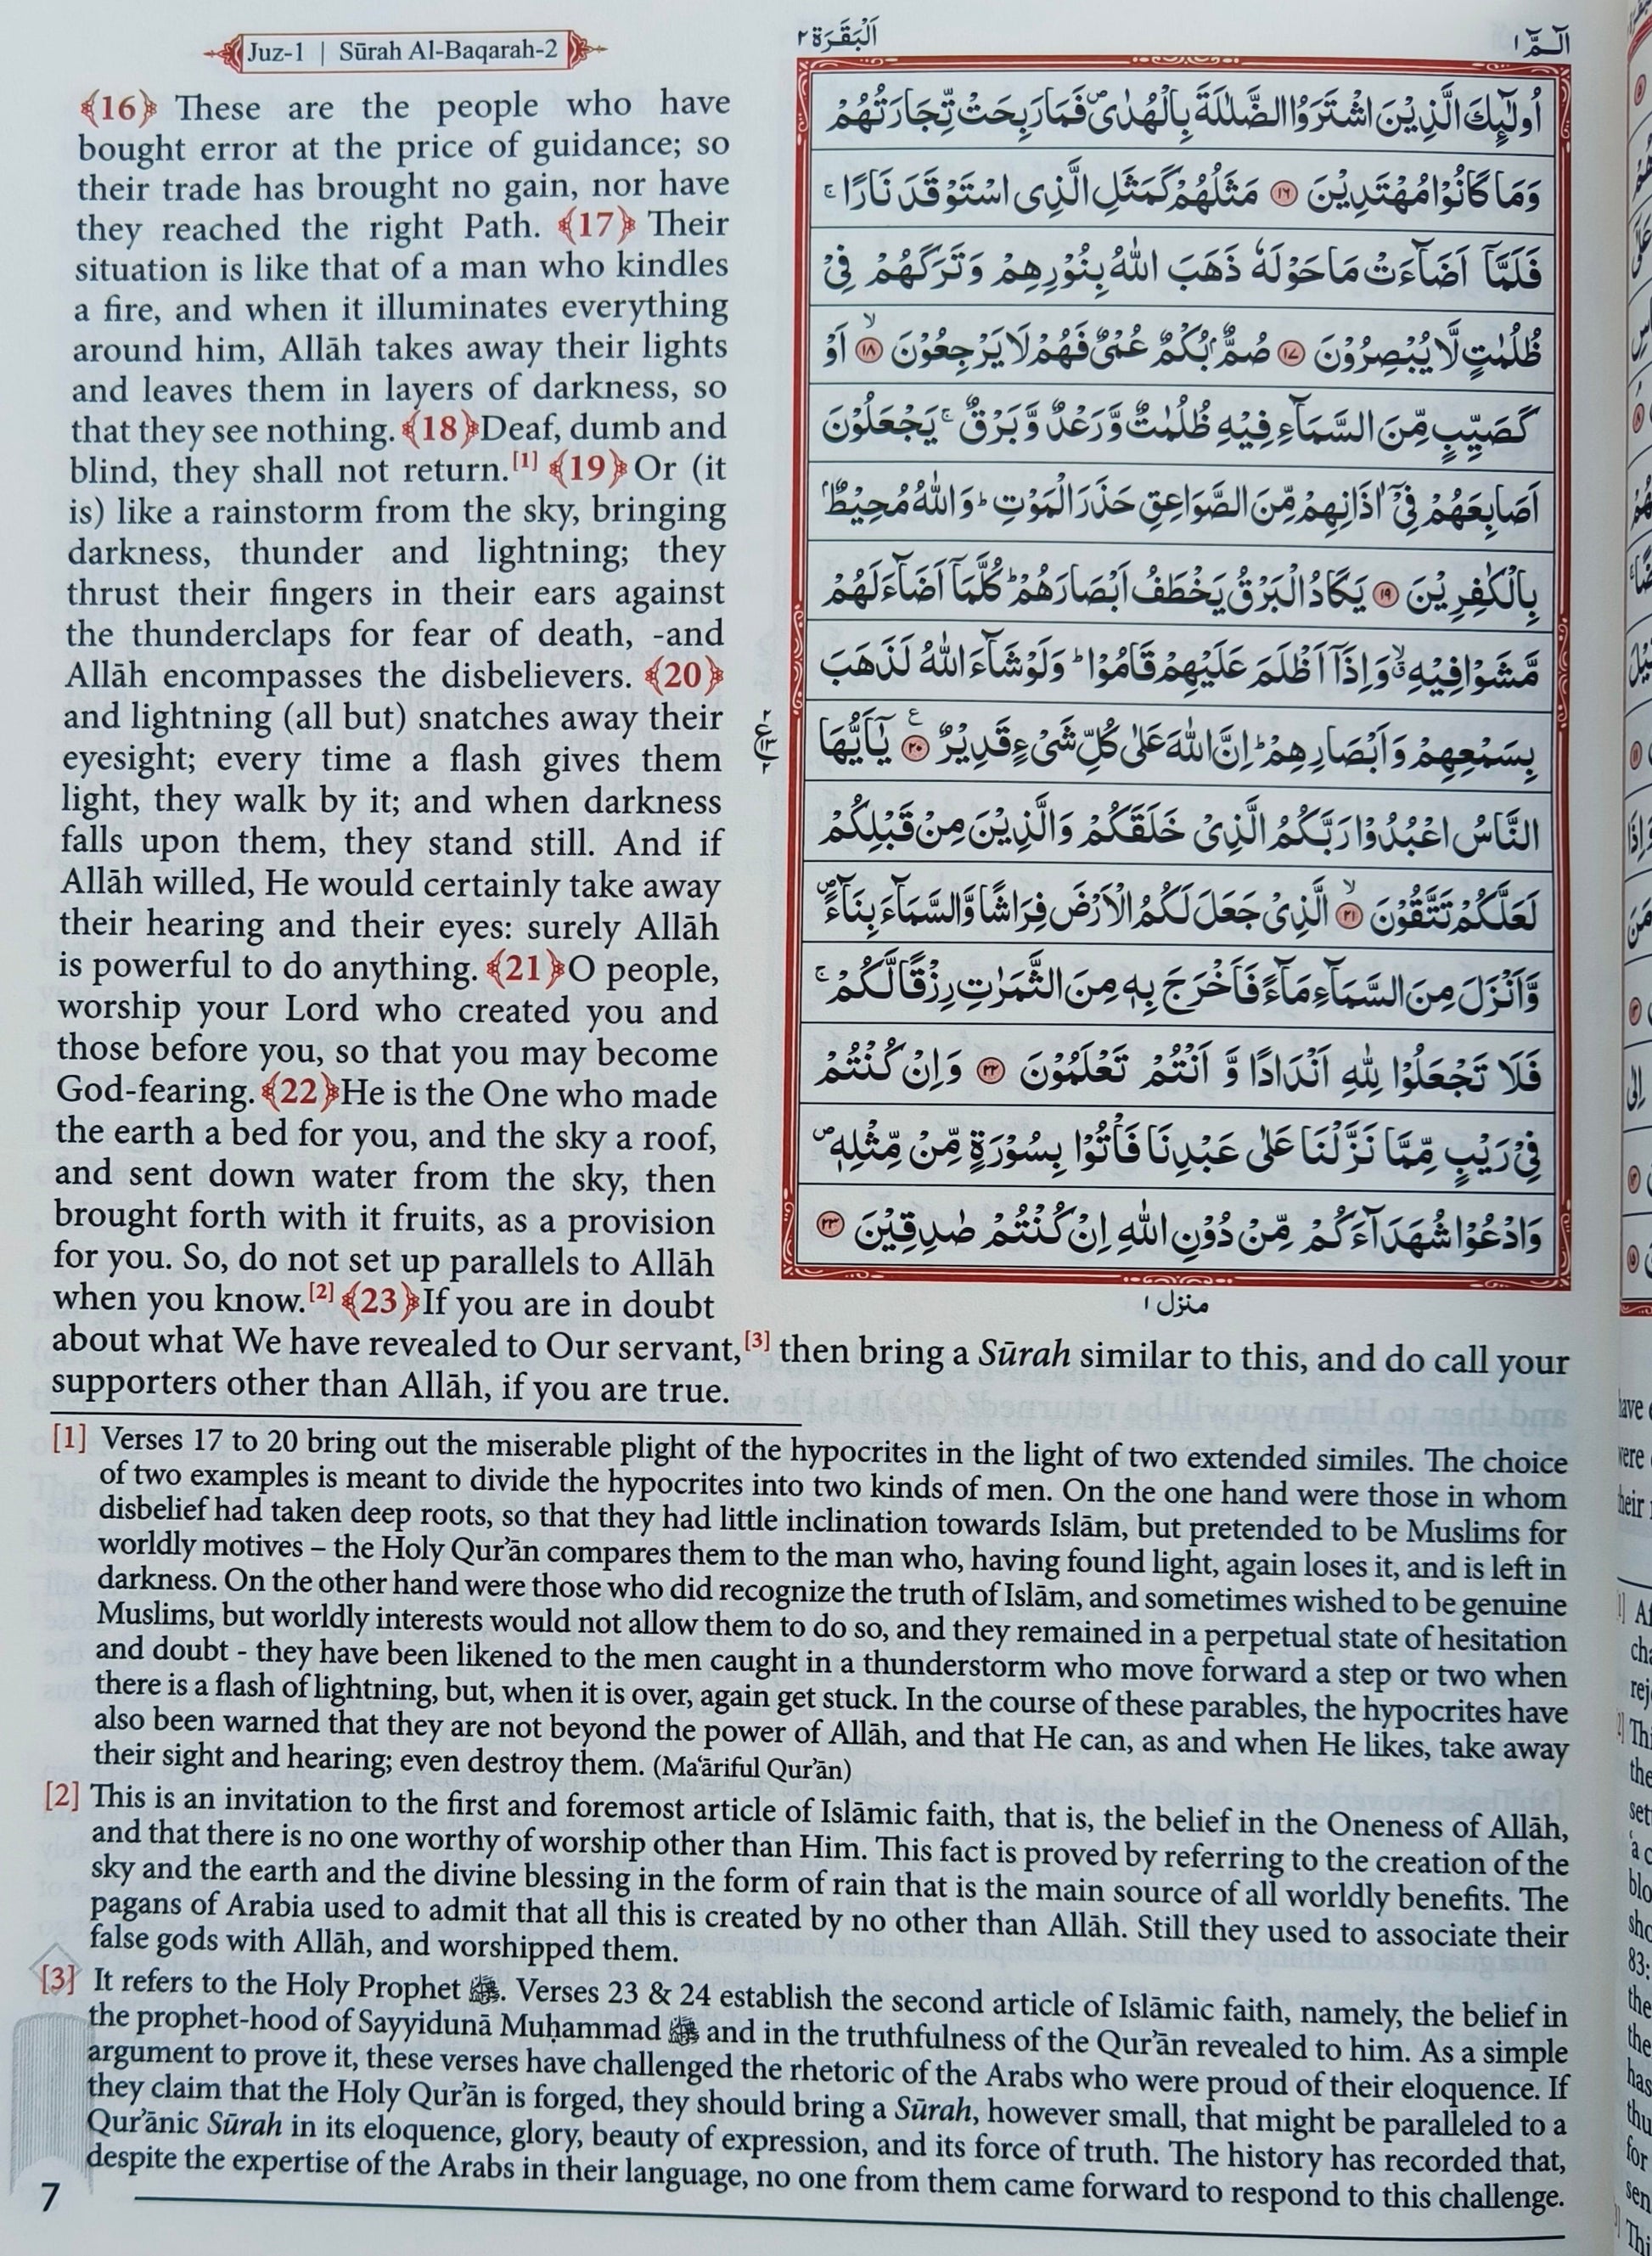 Juz-1 | Sūrah Al-Baqarah-2
اَلْبَقَرَة ٢
الٓـمّٓ ١
﴾16﴿ These are the people who have
bought error at the price of guidance; so
their trade has brought no gain, nor have
they reached the right Path. ﴾17﴿ Their
situation is like that of a man who kindles
a fire, and when it illuminates everything
around him, Allāh takes away their lights
and leaves them in layers of darkness, so
that they see nothing. ﴾18﴿Deaf, dumb and
blind, they shall not return.[1] ﴾19﴿Or (it
is) like a rainstorm from the sky, bringing
darkness, thunder and lightning; they
thrust their fingers in their ears against
the thunderclaps for fear of death, -and
Allāh encompasses the disbelievers. ﴾20﴿
and lightning (all but) snatches away their
eyesight; every time a flash gives them
light, they walk by it; and when darkness
falls upon them, they stand still. And if
Allāh willed, He would certainly take away
their hearing and their eyes: surely Allāh
is powerful to do anything. ﴾21﴿O people,
worship your Lord who created you and
those before you, so that you may become
God-fearing. ﴾22﴿He is the One who made
the earth a bed for you, and the sky a roof,
and sent down water from the sky, then
brought forth with it fruits, as a provision
for you. So, do not set up parallels to Allāh
when you know.[2] ﴾23﴿If you are in doubt
about what We have revealed to Our servant,[3] then bring a Sūrah similar to this, and do call your
supporters other than Allāh, if you are true.
اُولٰٓئِكَ الَّذِیْنَ اشْتَرَوُا الضَّلٰلَةَ بِالْهُدٰی۪ فَمَا رَبِحَتْ تِّجَارَتُهُمْ
وَمَا كَانُوْا مُهْتَدِیْنَ ١٦ مَثَلُهُمْ كَمَثَلِ الَّذِی اسْتَوْقَدَ نَارًا ۚ
فَلَمَّاۤ اَضَآءَتْ مَا حَوْلَهٗ ذَهَبَ اللّٰهُ بِنُوْرِهِمْ وَتَرَكَهُمْ فِیْ
ظُلُمٰتٍ لَّا یُبْصِرُوْنَ ١٧ صُمٌّۢ بُكْمٌ عُمْیٌ فَهُمْ لَا یَرْجِعُوْنَ ۙ ١٨ اَوْ
كَصَیِّبٍ مِّنَ السَّمَآءِ فِیْهِ ظُلُمٰتٌ وَّرَعْدٌ وَّبَرْقٌ ۚ یَجْعَلُوْنَ
اَصَابِعَهُمْ فِیْۤ اٰذَانِهِمْ مِّنَ الصَّوَاعِقِ حَذَرَ الْمَوْتِ ؕ وَاللّٰهُ مُحِیْطٌۢ
بِالْكٰفِرِیْنَ ١٩ یَكَادُ الْبَرْقُ یَخْطَفُ اَبْصَارَهُمْ ؕ كُلَّمَاۤ اَضَآءَ لَهُمْ
مَّشَوْا فِیْهِ ۙۗ وَاِذَاۤ اَظْلَمَ عَلَیْهِمْ قَامُوْا ؕ وَلَوْ شَآءَ اللّٰهُ لَذَهَبَ
بِسَمْعِهِمْ وَاَبْصَارِهِمْ ؕ اِنَّ اللّٰهَ عَلٰی كُلِّ شَیْءٍ قَدِیْرٌ ٢٠ ع یٰۤاَیُّهَا
النَّاسُ اعْبُدُوْا رَبَّكُمُ الَّذِیْ خَلَقَكُمْ وَالَّذِیْنَ مِنْ قَبْلِكُمْ
لَعَلَّكُمْ تَتَّقُوْنَ ۙ ٢١ الَّذِیْ جَعَلَ لَكُمُ الْاَرْضَ فِرَاشًا وَّالسَّمَآءَ بِنَآءً ۪
وَّاَنْزَلَ مِنَ السَّمَآءِ مَآءً فَاَخْرَجَ بِهٖ مِنَ الثَّمَرٰتِ رِزْقًا لَّكُمْ ۚ
فَلَا تَجْعَلُوْا لِلّٰهِ اَنْدَادًا وَّ اَنْتُمْ تَعْلَمُوْنَ ٢٢ وَاِنْ كُنْتُمْ
فِیْ رَیْبٍ مِّمَّا نَزَّلْنَا عَلٰی عَبْدِنَا فَاْتُوْا بِسُوْرَةٍ مِّنْ مِّثْلِهٖ ۪
وَادْعُوْا شُهَدَآءَكُمْ مِّنْ دُوْنِ اللّٰهِ اِنْ كُنْتُمْ صٰدِقِیْنَ ٢٣
منزل ١
[1] Verses 17 to 20 bring out the miserable plight of the hypocrites in the light of two extended similes. The choice
of two examples is meant to divide the hypocrites into two kinds of men. On the one hand were those in whom
disbelief had taken deep roots, so that they had little inclination towards Islām, but pretended to be Muslims for
worldly motives – the Holy Qur'ān compares them to the man who, having found light, again loses it, and is left in
darkness. On the other hand were those who did recognize the truth of Islām, and sometimes wished to be genuine
Muslims, but worldly interests would not allow them to do so, and they remained in a perpetual state of hesitation
and doubt - they have been likened to the men caught in a thunderstorm who move forward a step or two when
there is a flash of lightning, but, when it is over, again get stuck. In the course of these parables, the hypocrites have
also been warned that they are not beyond the power of Allāh, and that He can, as and when He likes, take away
their sight and hearing; even destroy them. (Ma‘āriful Qur'ān)
[2] This is an invitation to the first and foremost article of Islāmic faith, that is, the belief in the Oneness of Allāh,
and that there is no one worthy of worship other than Him. This fact is proved by referring to the creation of the
sky and the earth and the divine blessing in the form of rain that is the main source of all worldly benefits. The
pagans of Arabia used to admit that all this is created by no other than Allāh. Still they used to associate their
false gods with Allāh, and worshipped them.
[3] It refers to the Holy Prophet ﷺ. Verses 23 & 24 establish the second article of Islāmic faith, namely, the belief in
the prophet-hood of Sayyidunā Muḥammad ﷺ and in the truthfulness of the Qur'ān revealed to him. As a simple
argument to prove it, these verses have challenged the rhetoric of the Arabs who were proud of their eloquence. If
they claim that the Holy Qur'ān is forged, they should bring a Sūrah, however small, that might be paralleled to a
Qur'ānic Sūrah in its eloquence, glory, beauty of expression, and its force of truth. The history has recorded that,
despite the expertise of the Arabs in their language, no one from them came forward to respond to this challenge.
7